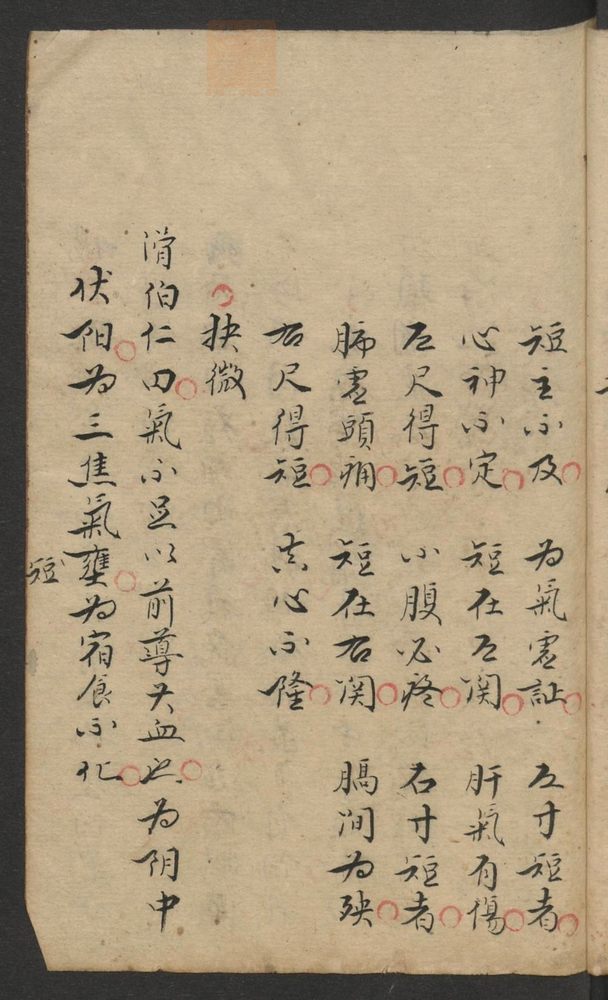 短主不及　为氣虛証　左寸短者
心神不定　短在左関　肝氣有傷
左尺得短　小腹必疼　右寸短者
肺虛頭痛　短在右関　膈间为殃
右尺得短　真心不隆
抉微
滑伯仁曰氣不足以前導其血也为阴中
伏阳为三焦氣壅为宿食不化
短